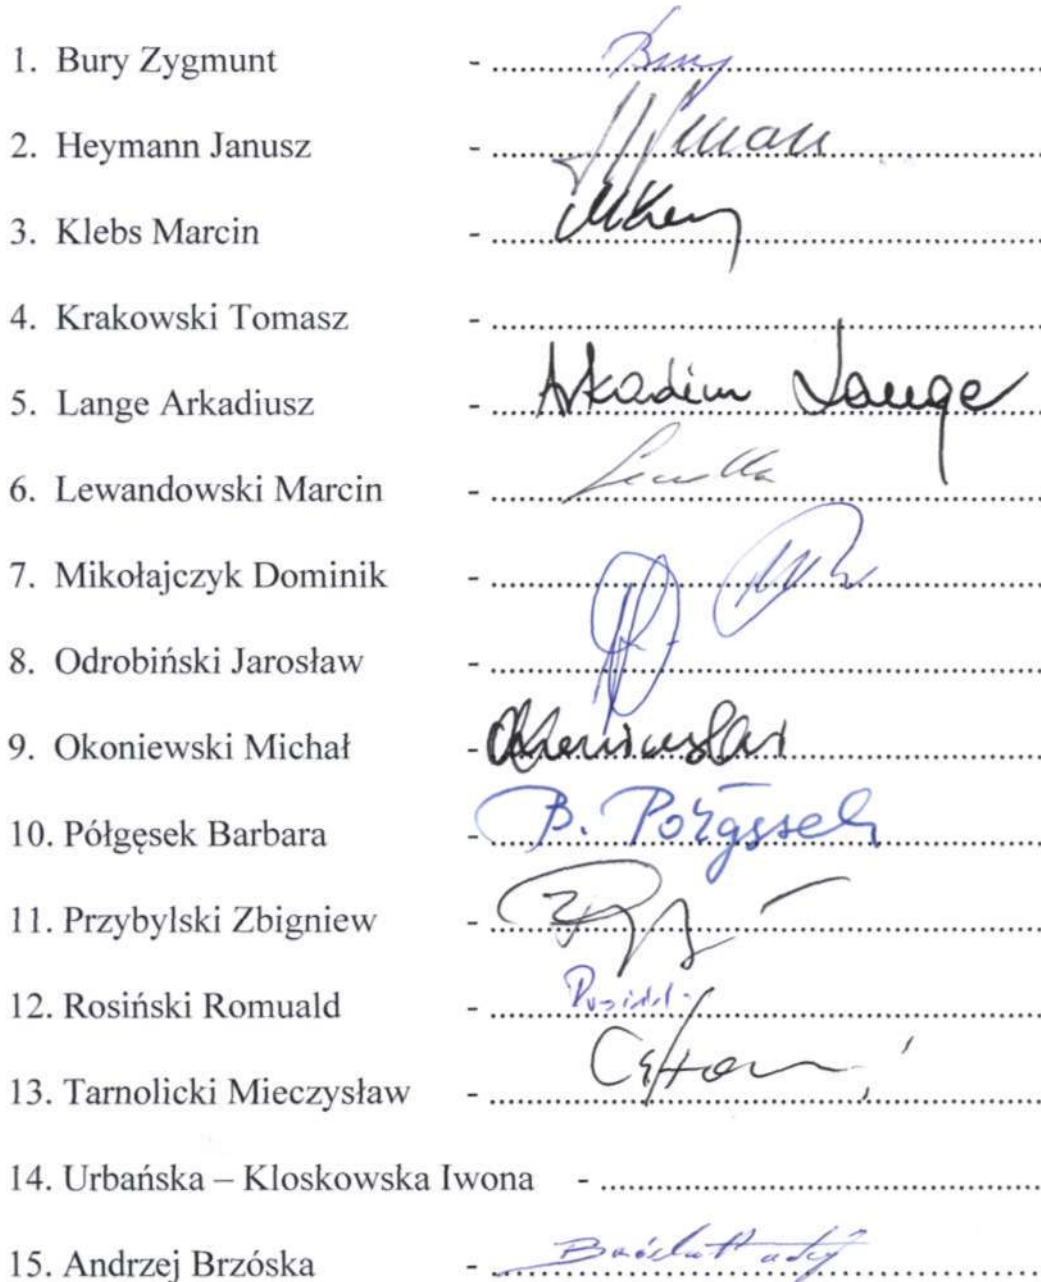 1. Bury Zygmunt - Bury
2. Heymann Janusz -
3. Klebs Marcin -
4. Krakowski Tomasz -
5. Lange Arkadiusz - Arkadiusz Lange
6. Lewandowski Marcin -
7. Mikołajczyk Dominik -
8. Odrobiński Jarosław -
9. Okoniewski Michał -
10. Półgęsek Barbara - B. Półgęsek
11. Przybylski Zbigniew -
12. Rosiński Romuald -
13. Tarnolicki Mieczysław -
14. Urbańska – Kloskowska Iwona -
15. Andrzej Brzóska -